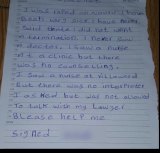 I was raped on
Beat very sick I have never
Said that I did not want
a termination I never saw
a doctor, I saw a nurse
at a clinic but there
was no counselling.
I saw a nurse at Villawood
But there was no interpreter
I asked but was not allowed
To talk with my Lawyer
Please help me
Signed